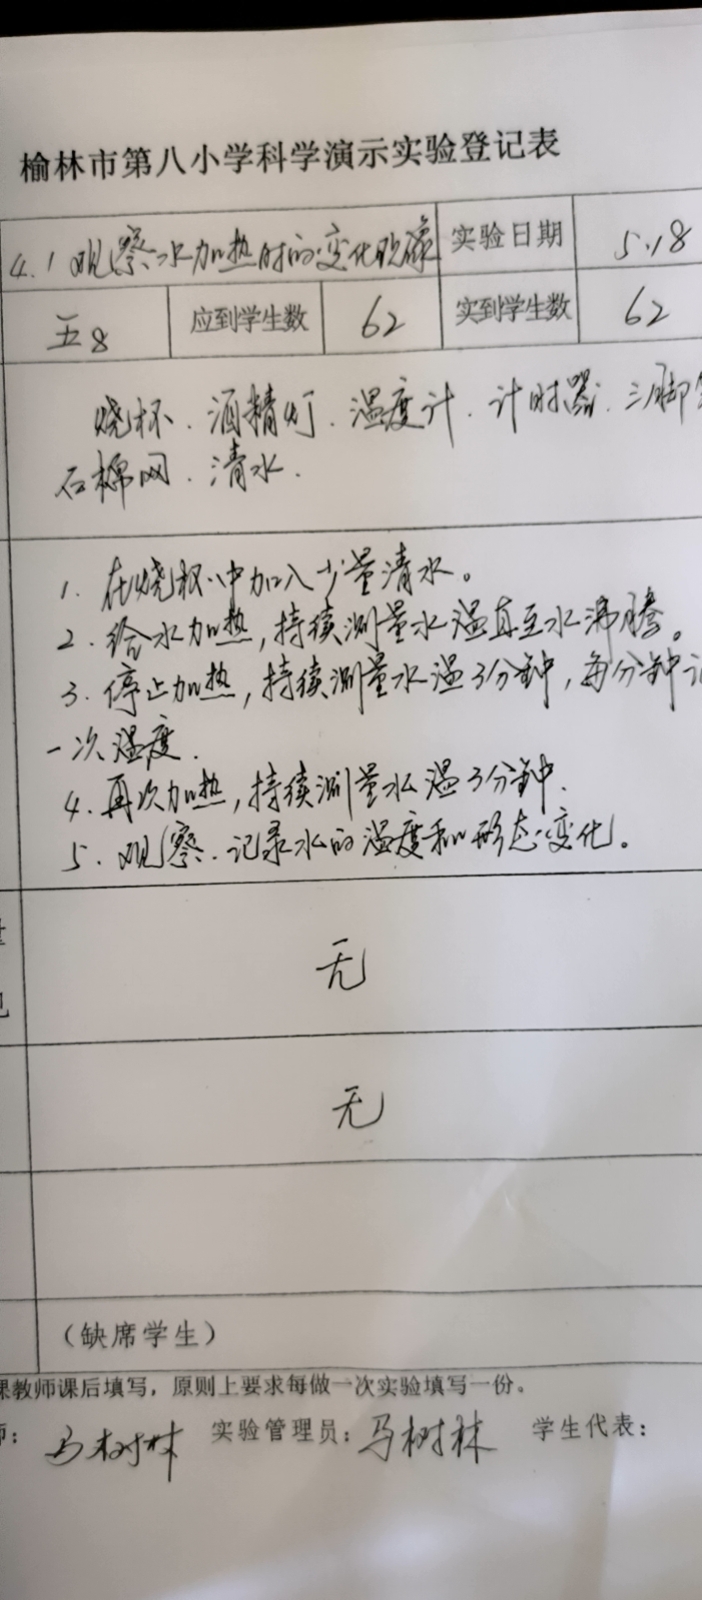 榆林市第八小学科学演示实验登记表
4.1 观察水加热时的变化现像 实验日期 5.18
五8 应到学生数 62 实到学生数 62
烧杯.酒精灯.温度计.计时器.三脚
石棉网.清水.
1. 在烧杯中加入少量清水。
2. 给水加热,持续测量水温直至水沸腾。
3. 停止加热,持续测量水温3分钟,每分钟记
一次温度.
4. 再次加热,持续测量水温3分钟.
5. 观察.记录水的温度和形态变化。
无
无
(缺席学生)
课教师课后填写,原则上要求每做一次实验填写一份。
师: 马树林 实验管理员: 马树林 学生代表: